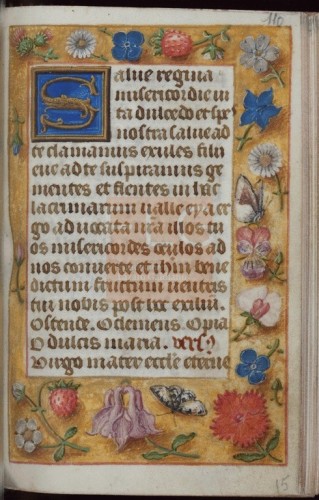 110
Salue regina
misericordie ui
ta dulcedo et spes
nostra salue ad
te clamamus exules filii
eue ad te suspiramus ge
mentes et flentes in hac
lacrimarum ualle eya er
go aduocata nra illos tu
os misericordes oculos ad
nos conuerte et ihm bene
dictum fructum uentris
tui nobis post hoc exiliū.
Ostende. O clemens. O pia
O dulcis maria. vers9
Uirgo mater eccle eterne
15